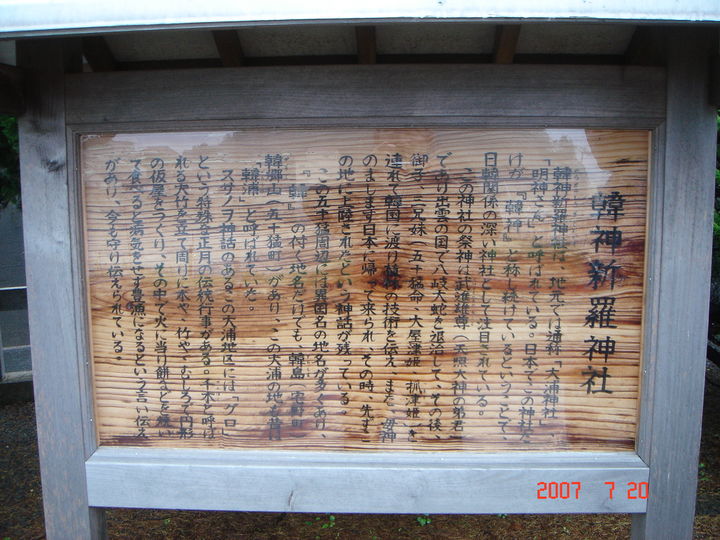 韓神新羅神社
韓神新羅神社は、地元では通称「大浦神社」
「明神さん」と呼ばれている。日本でこの神社だ
けが『韓神』と称し続けているということで、
日韓関係の深い神社として注目されている。
この神社の祭神は武進雄尊（天照大神の弟君）
であり出雲の国で八岐大蛇を退治して、その後、
御子、三兄妹（五十猛命・大屋津姫・抓津姫）を
連れて韓国に渡り植林の技術を伝え、また、母神
のまします日本に帰って来られ、その時、先ず
の地に上陸されたという神話が残っている。
この五十猛周辺には異国名の地名が多くあり、
『韓』の付く地名だけでも、韓島（宅野町）
韓郷山（五十猛町）があり、この大浦の地も昔は
「韓浦」と呼ばれていた。
スサノヲ神話のあるこの大浦地区には「グロ」
という特殊な正月の伝統行事がある。千木と呼ば
れる大竹を立て周りに木や、竹や、むしろで円形
の仮屋をつくり、その中で火に当り餅などを焼い
て食べると病気をせず豊漁になるという言い伝え
があり、今も守り伝えられている。
2007 7 20